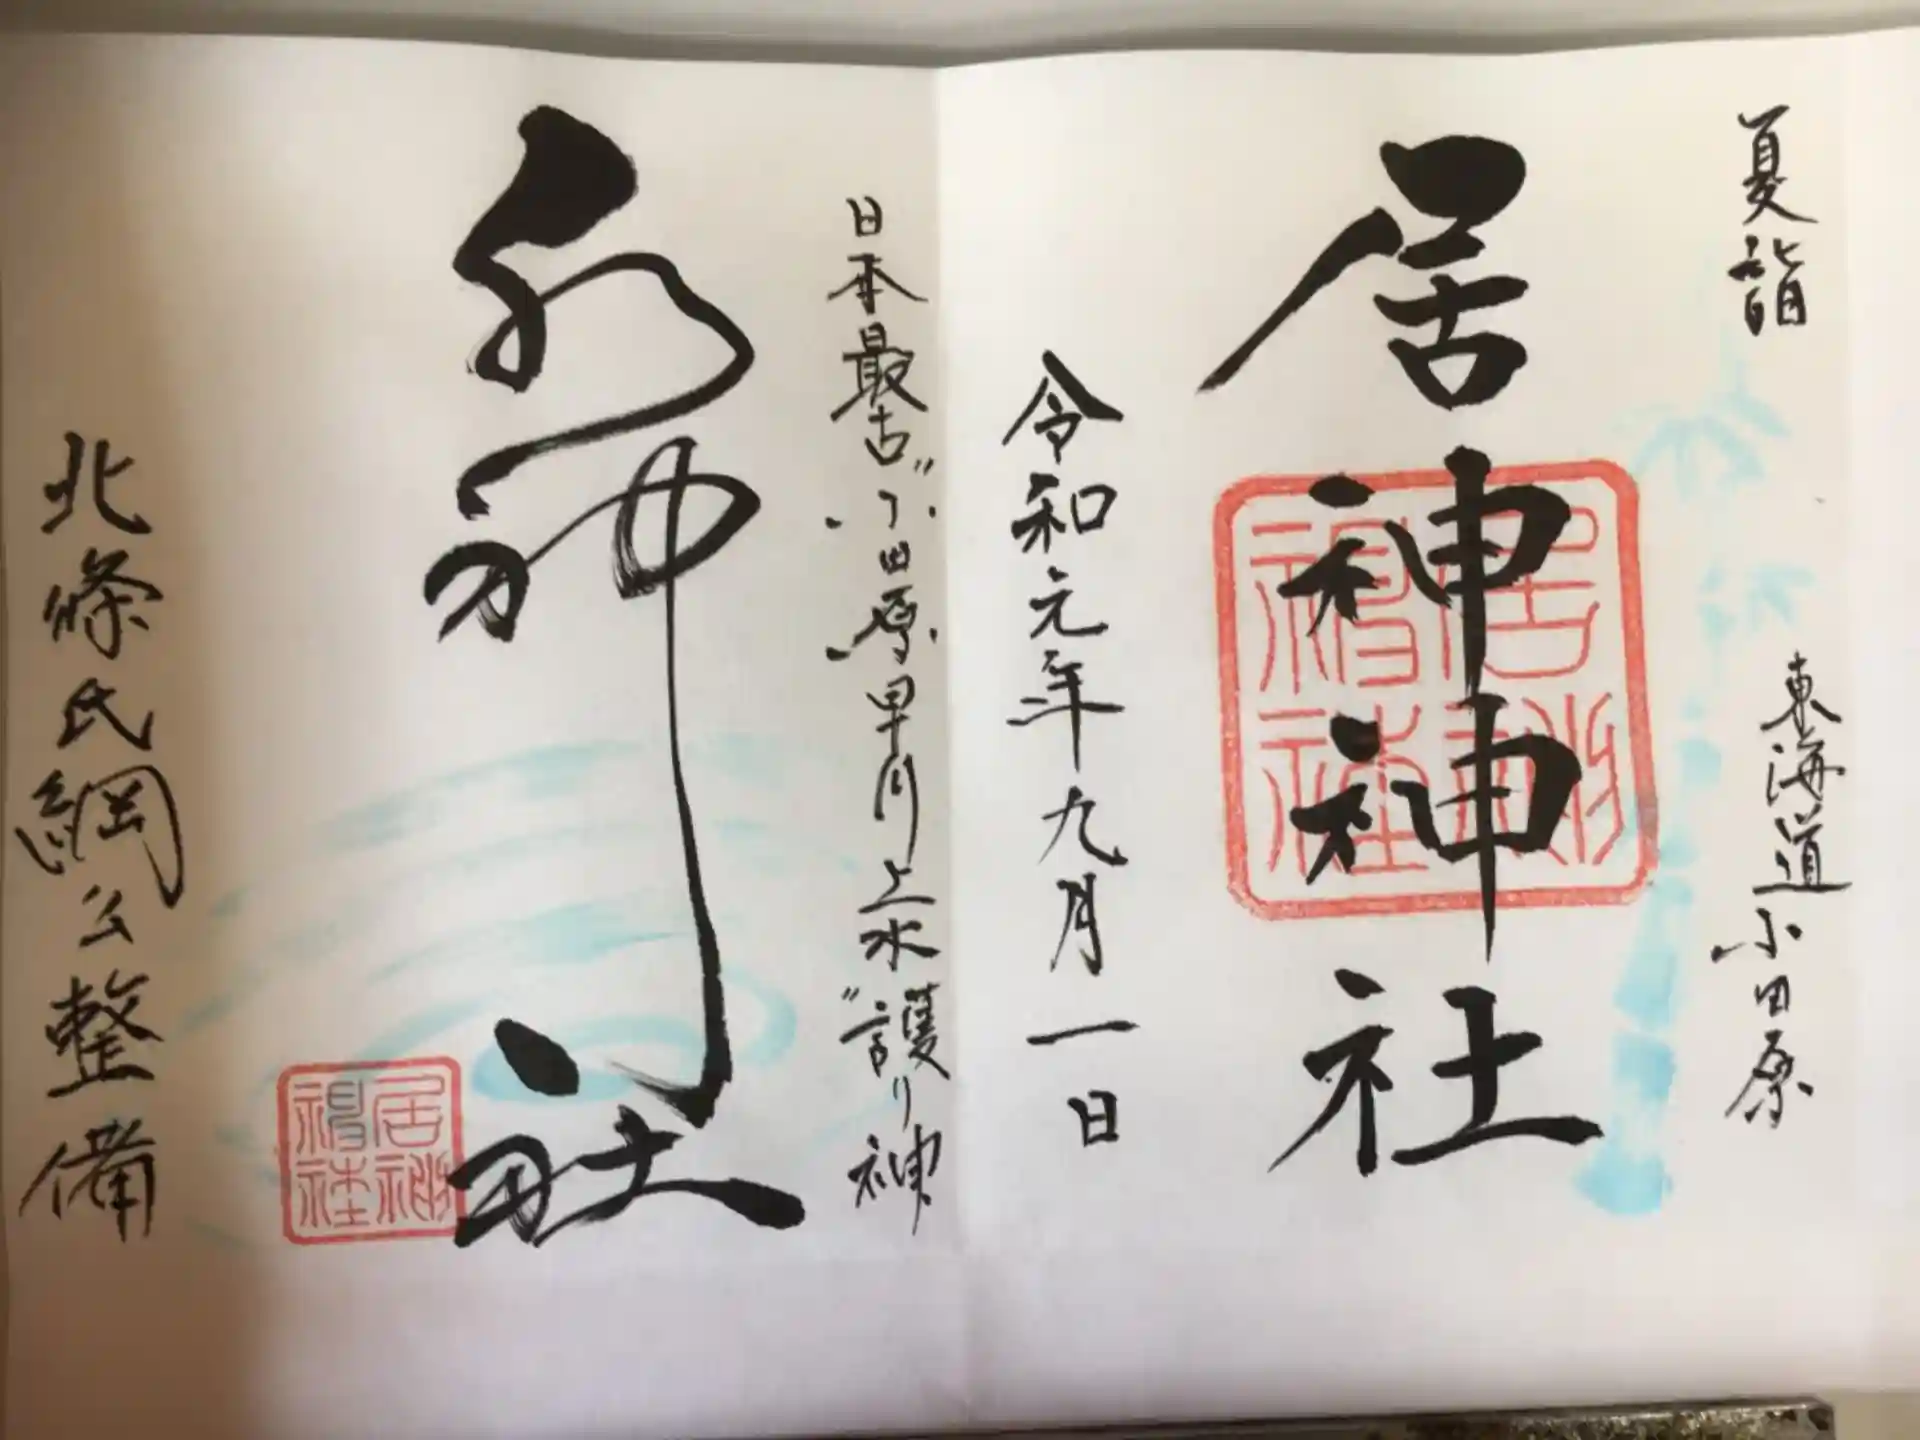 夏詣
東海道小田原
居神神社
居神
神社
令和元年九月一日
日本最古"小田原早川上水"護り神
水神社
居神
神社
北條氏綱公整備